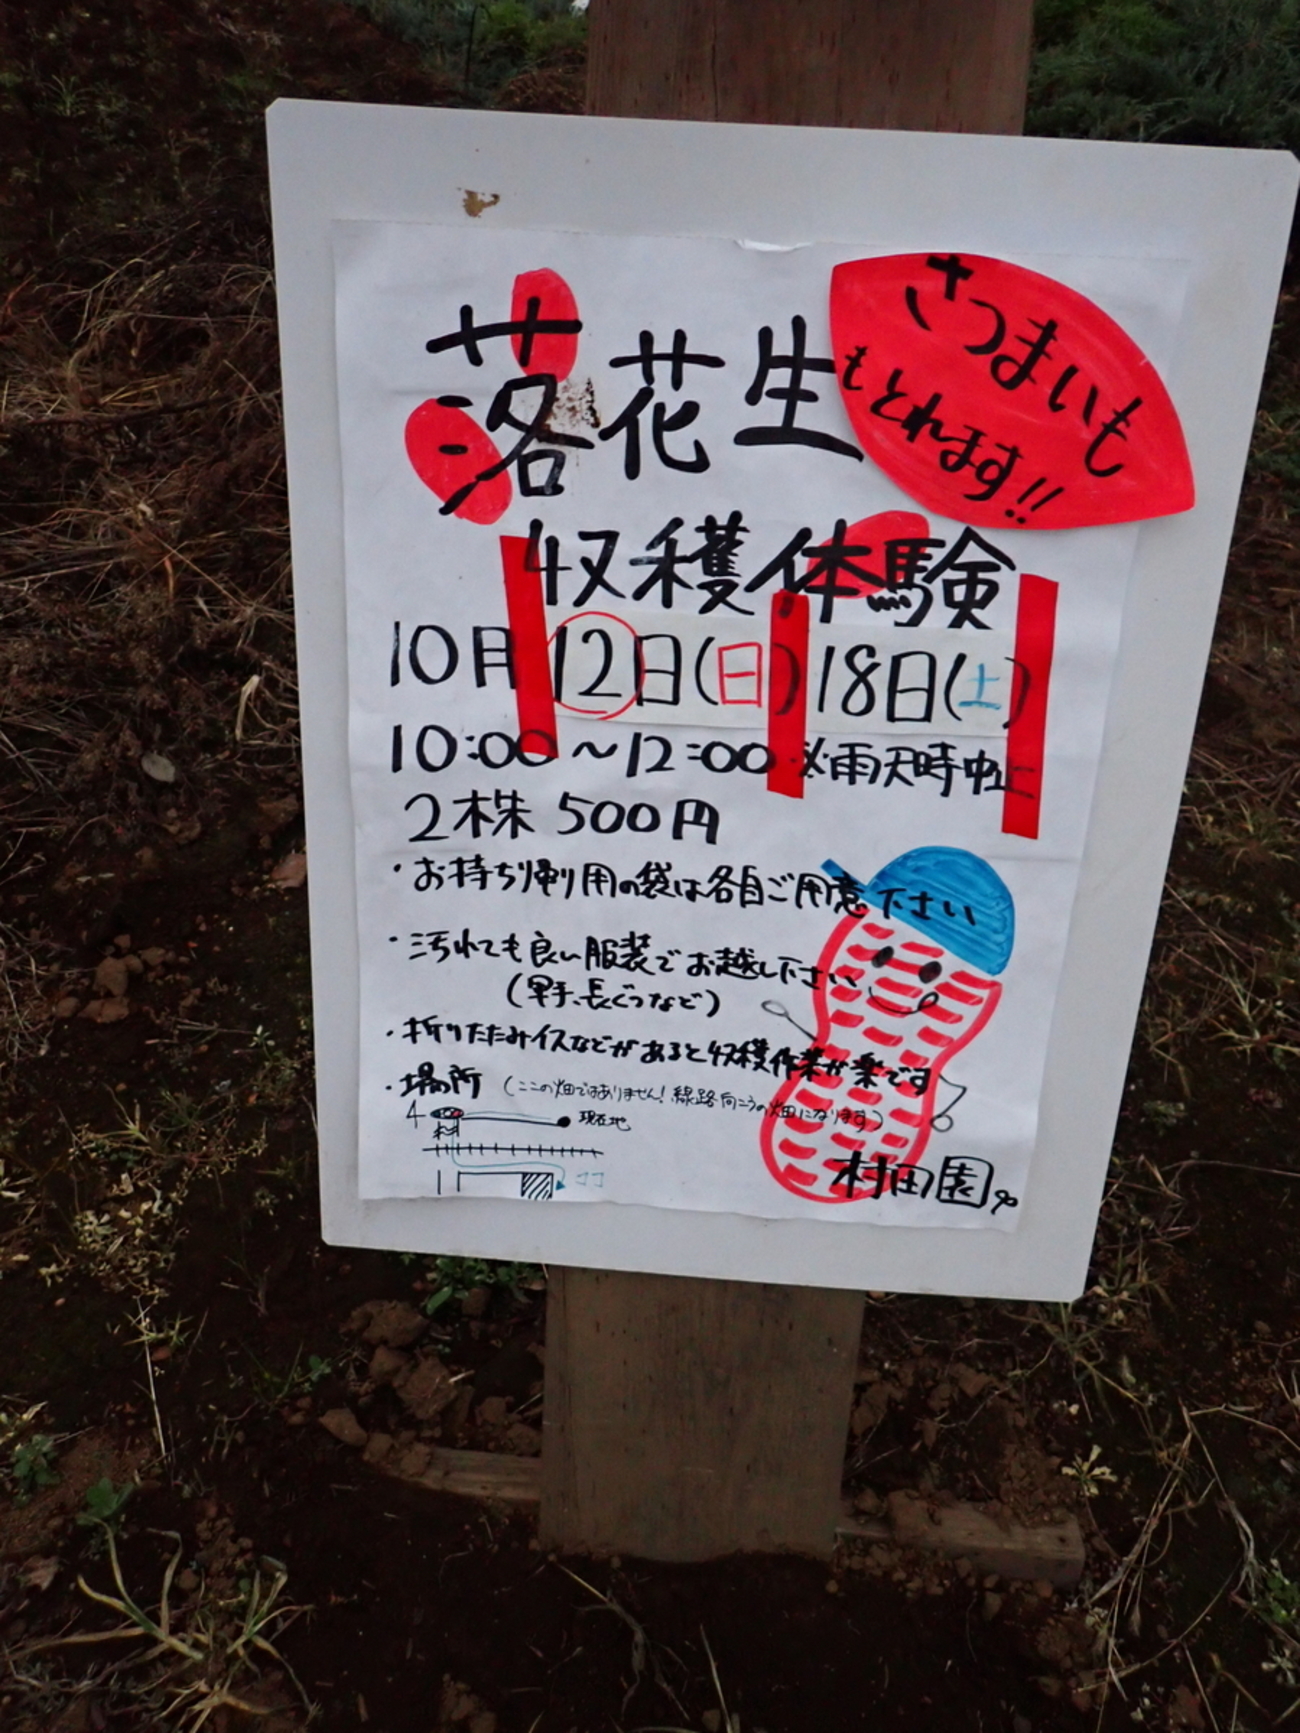 さつまいも
もとれます!!
落花生
収穫体験
10月12日(日)18日(土)
10:00〜12:00 ※雨天時中止
2株 500円
・お持ち帰り用の袋は各自ご用意下さい
・汚れても良い服装でお越し下さい
(軍手、長ぐつなど)
・折りたたみイスなどがあると収穫作業が楽です
・場所 (ここの畑ではありません!線路向こうの畑になります)
現在地
ココ
村田園